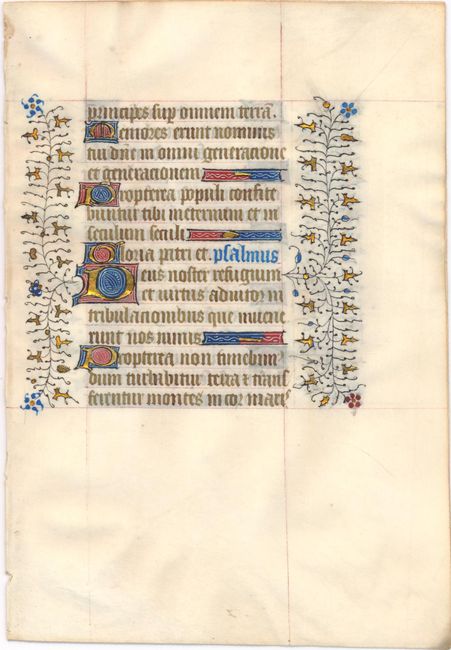 principes sup omnem terrā.
Memores erunt nominis
tui dn̄e in omni generacione
et generacionem
Propterea populi confite
buntur tibi in eternum et in
seculum seculi
Gloria patri et. psalmus
Deus noster refugium
et uirtus adiutor in
tribulacionibus que inuene
runt nos nimis
Propterea non timebim᷒
dum turbabitur terra ⁊ trans
ferentur montes in cor maris